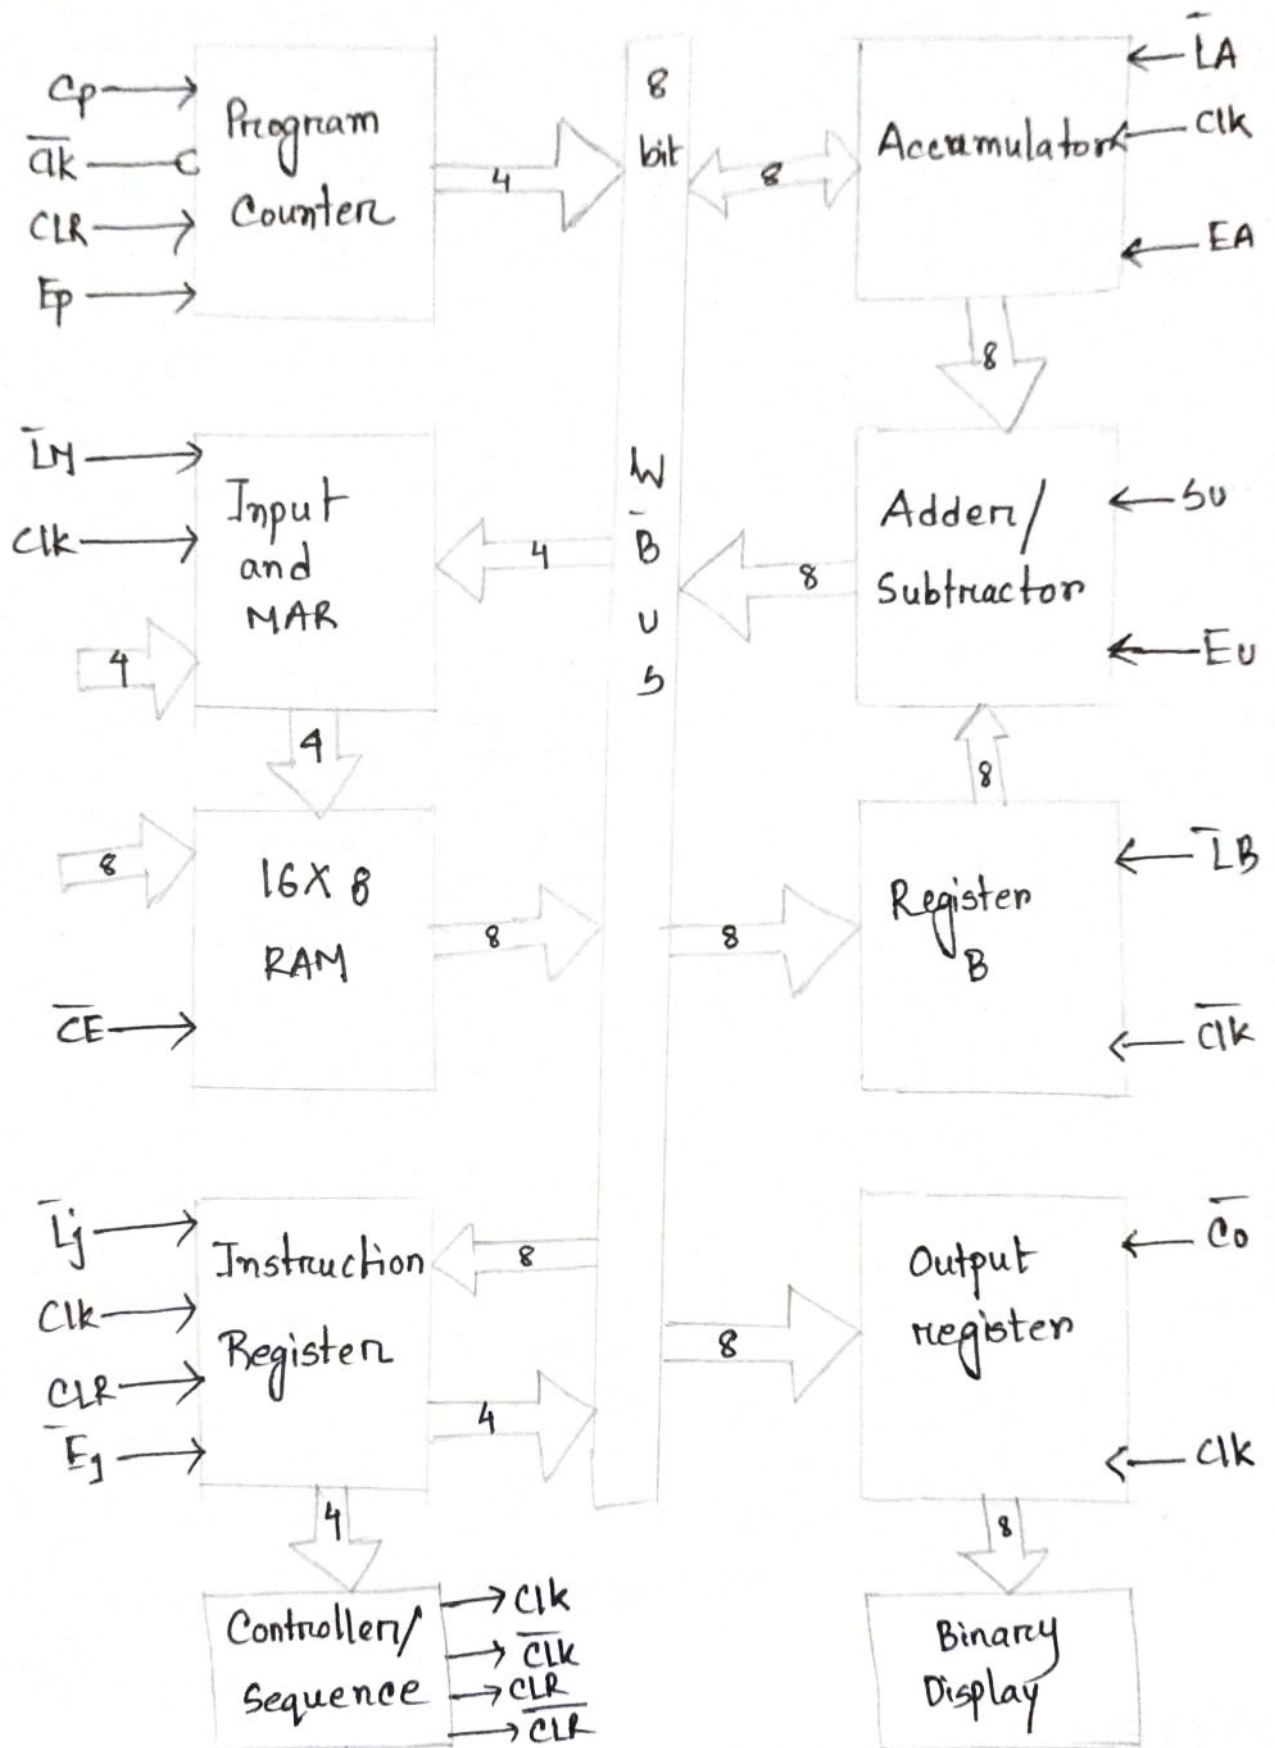 Cp
C̅l̅k̅
CLR
Ep
Program
Counter
4
8
bit
W
B̅
U
S
8
Accumulator
L̅A
Clk
EA
8
L̅M
Clk
4
Input
and
MAR
4
4
Adder/
Subtractor
8
SU
EU
8
8
C̅E̅
16X8
RAM
8
8
Register
B
L̅B
C̅l̅k̅
L̅j
Clk
CLR
E̅j
Instruction
Register
8
4
4
8
Output
register
C̅o̅
Clk
8
Controller/
Sequence
Clk
C̅L̅K̅
CLR
C̅L̅R̅
Binary
Display